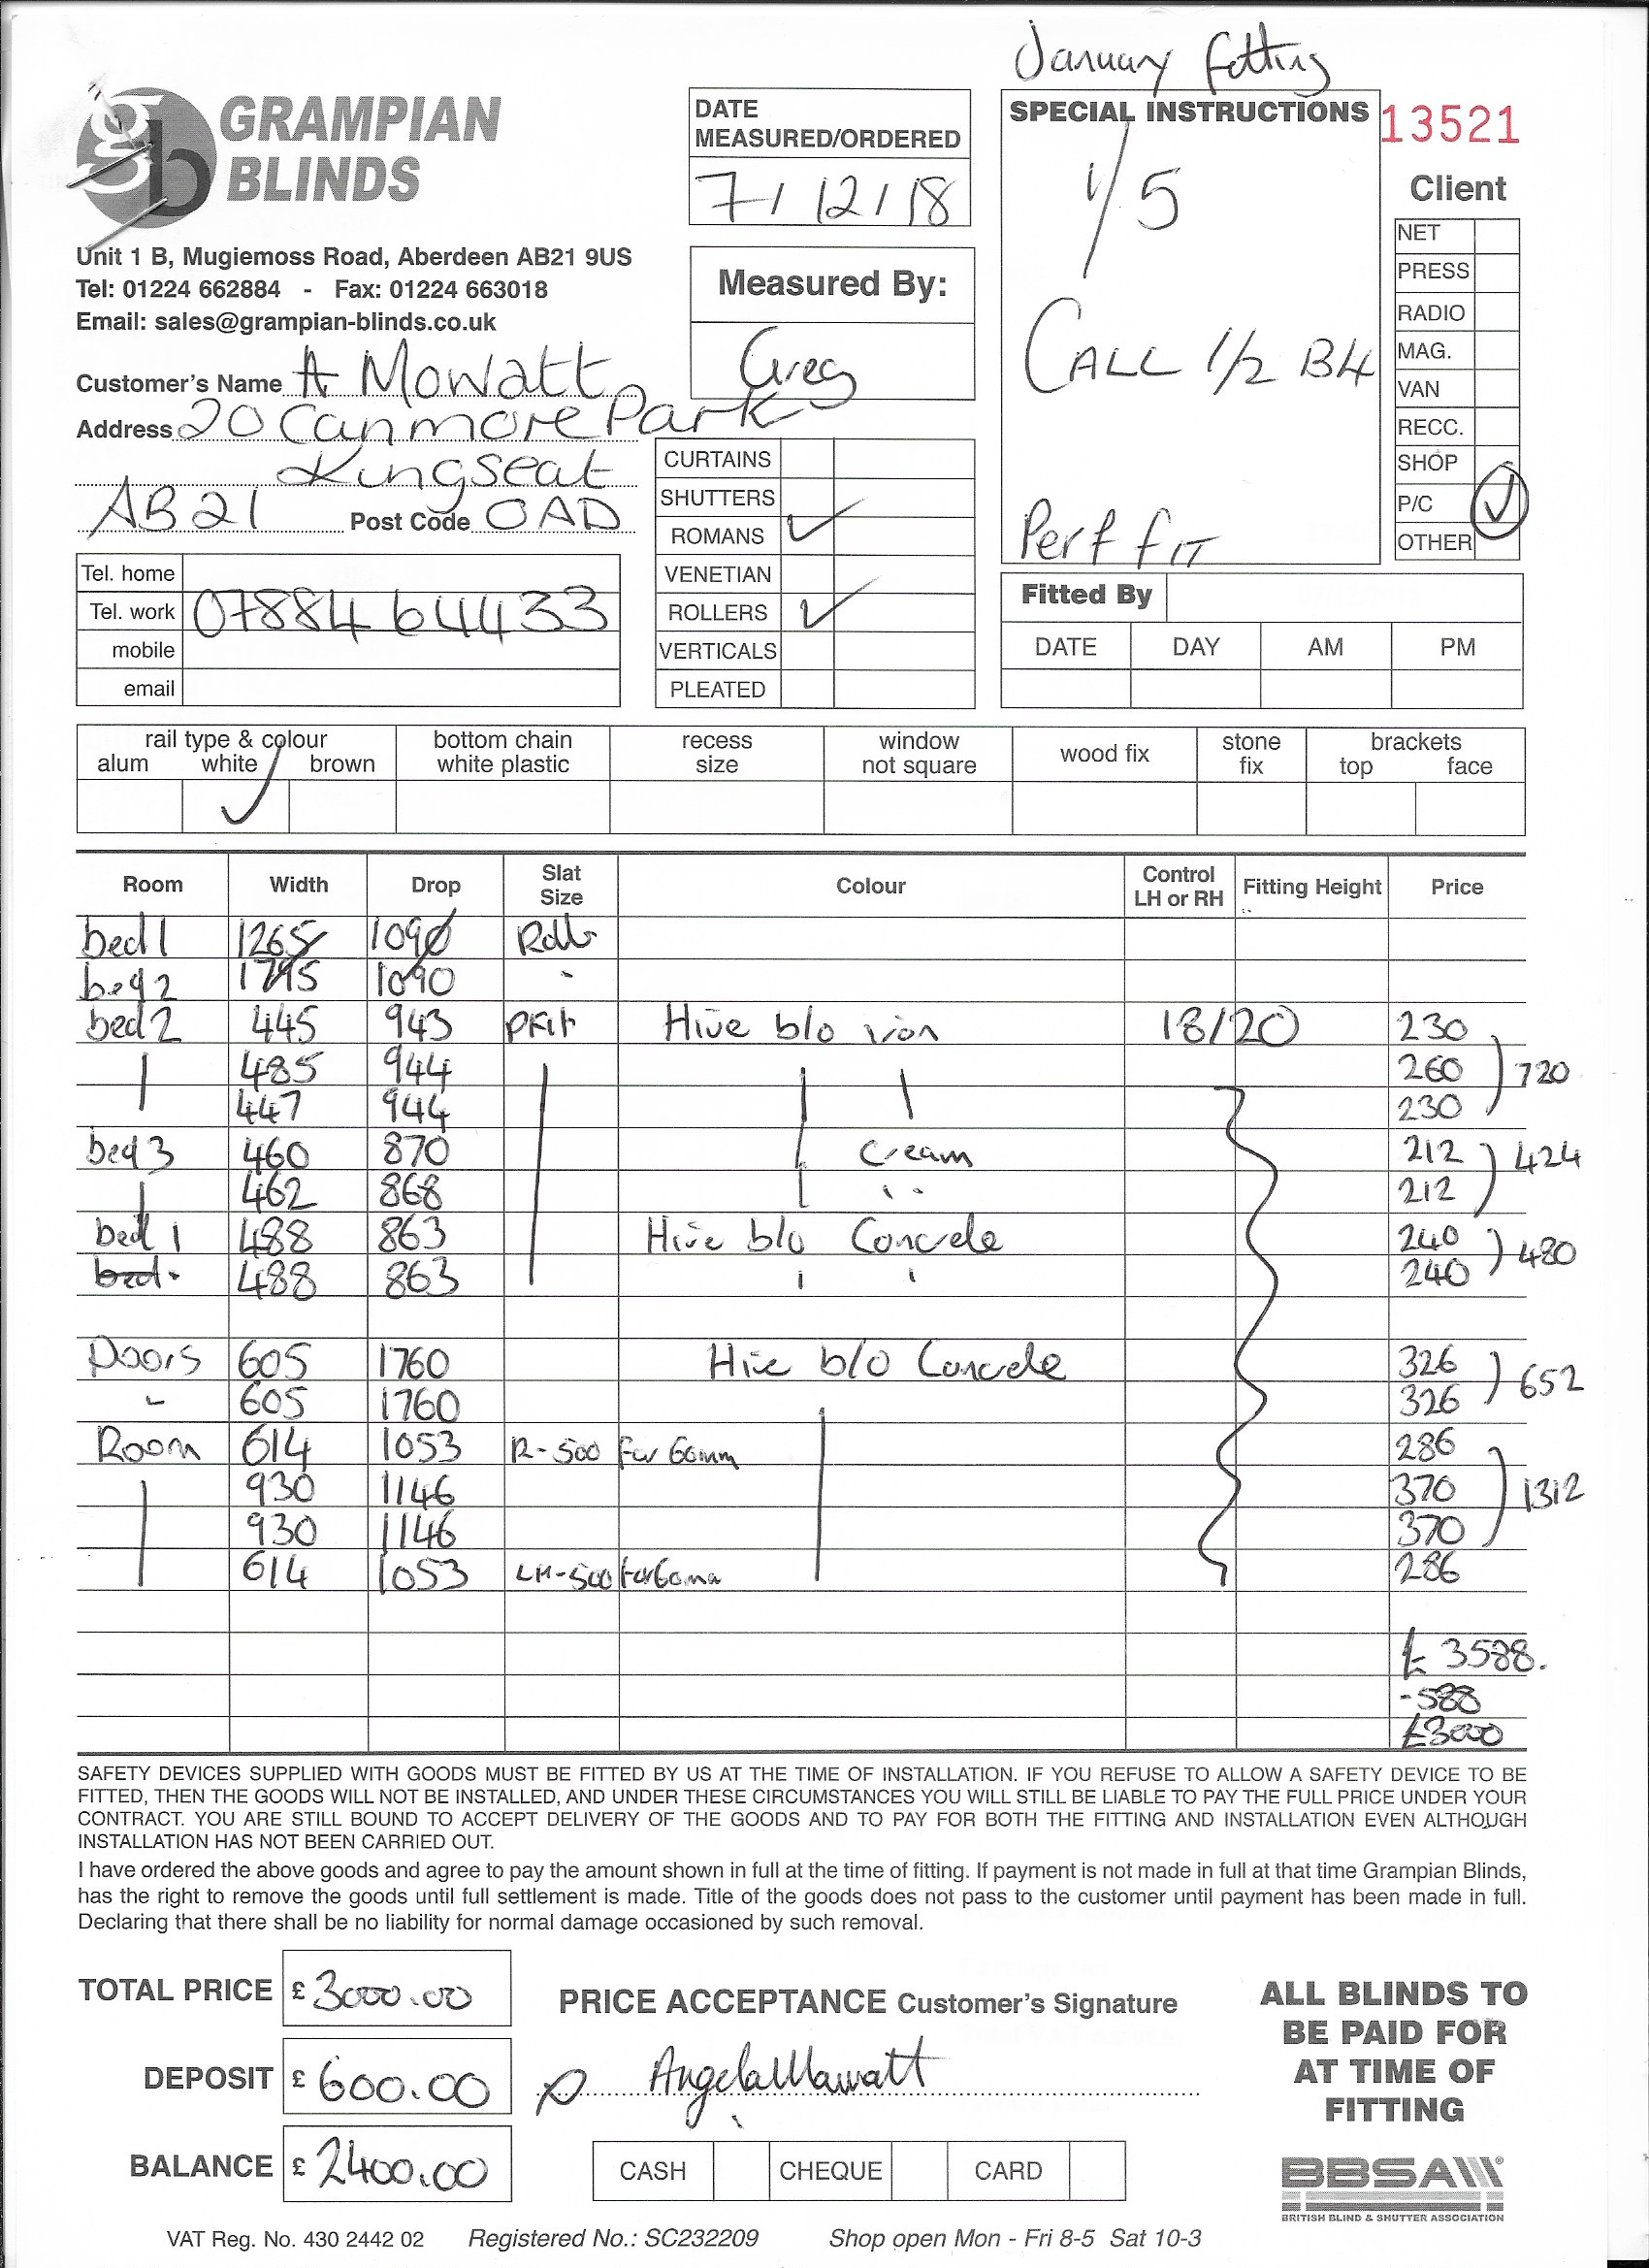 January Fitting
GRAMPIAN
BLINDS
Unit 1 B, Mugiemoss Road, Aberdeen AB21 9US
Tel: 01224 662884 - Fax: 01224 663018
Email: sales@grampian-blinds.co.uk
Customer's Name A Mowatt
Address 20 Canmore Park
Kingseat
AB21 Post Code 0AD
Tel. home
Tel. work 07884 644433
mobile
email
DATE
MEASURED/ORDERED
7/12/18
Measured By:
Greg
CURTAINS
SHUTTERS
ROMANS ✓
VENETIAN
ROLLERS ✓
VERTICALS
PLEATED
SPECIAL INSTRUCTIONS
1/5
CALL 1/2 B4
Perf FIT
13521
Client
NET
PRESS
RADIO
MAG.
VAN
RECC.
SHOP
P/C ✓
OTHER
Fitted By
DATE DAY AM PM
rail type & colour bottom chain recess window wood fix stone brackets
alum white brown white plastic size not square fix top face
✓
Room Width Drop Slat Size Colour Control LH or RH Fitting Height Price
bed 1 1265 1090
bed 2 1795 1090
bed 2 445 943 PFit Hive b/o iron 18/20 230
485 944 260 720
447 944 230
bed 3 460 870 Cream 212 424
462 868 212
bed 1 488 863 Hive b/o Concrete 240 480
488 863 240
Doors 605 1760 Hive b/o Concrete 326 652
605 1760 326
Room 614 1053 R-500 For 60mm 286
930 1146 370 1312
930 1146 370
614 1053 LH-500 286
£3588.
-588
£3000
SAFETY DEVICES SUPPLIED WITH GOODS MUST BE FITTED BY US AT THE TIME OF INSTALLATION. IF YOU REFUSE TO ALLOW A SAFETY DEVICE TO BE
FITTED, THEN THE GOODS WILL NOT BE INSTALLED, AND UNDER THESE CIRCUMSTANCES YOU WILL STILL BE LIABLE TO PAY THE FULL PRICE UNDER YOUR
CONTRACT. YOU ARE STILL BOUND TO ACCEPT DELIVERY OF THE GOODS AND TO PAY FOR BOTH THE FITTING AND INSTALLATION EVEN ALTHOUGH
INSTALLATION HAS NOT BEEN CARRIED OUT.
I have ordered the above goods and agree to pay the amount shown in full at the time of fitting. If payment is not made in full at that time Grampian Blinds,
has the right to remove the goods until full settlement is made. Title of the goods does not pass to the customer until payment has been made in full.
Declaring that there shall be no liability for normal damage occasioned by such removal.
TOTAL PRICE £ 3000.00
DEPOSIT £ 600.00
BALANCE £ 2400.00
PRICE ACCEPTANCE Customer's Signature
Angela Mowatt
CASH CHEQUE CARD
ALL BLINDS TO
BE PAID FOR
AT TIME OF
FITTING
BBSA
BRITISH BLIND & SHUTTER ASSOCIATION
VAT Reg. No. 430 2442 02 Registered No.: SC232209 Shop open Mon - Fri 8-5 Sat 10-3